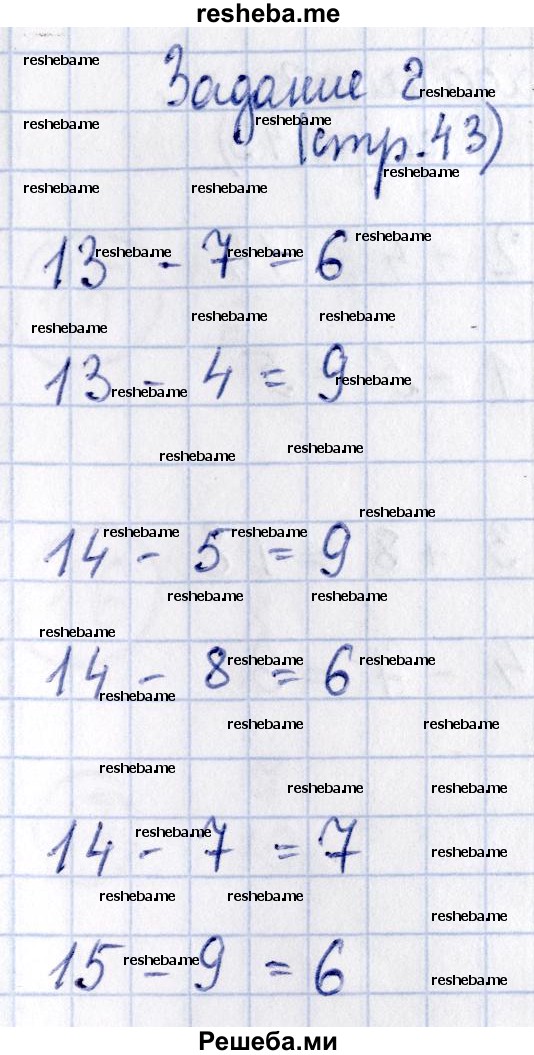 resheba.me
resheba.me
Задание 2
resheba.me
resheba.me resheba.me
(стр. 43)
resheba.me
resheba.me resheba.me
resheba.me
13 - 7 = 6
resheba.me resheba.me
resheba.me resheba.me
resheba.me
13 - 4 = 9
resheba.me
resheba.me
resheba.me
resheba.me
resheba.me
resheba.me resheba.me
14 - 5 = 9
resheba.me resheba.me
resheba.me
resheba.me resheba.me
14 - 8 = 6
resheba.me
resheba.me resheba.me
resheba.me
resheba.me resheba.me
resheba.me
14 - 7 = 7
resheba.me
resheba.me resheba.me
resheba.me
resheba.me
15 - 9 = 6
resheba.me
Решеба.ми